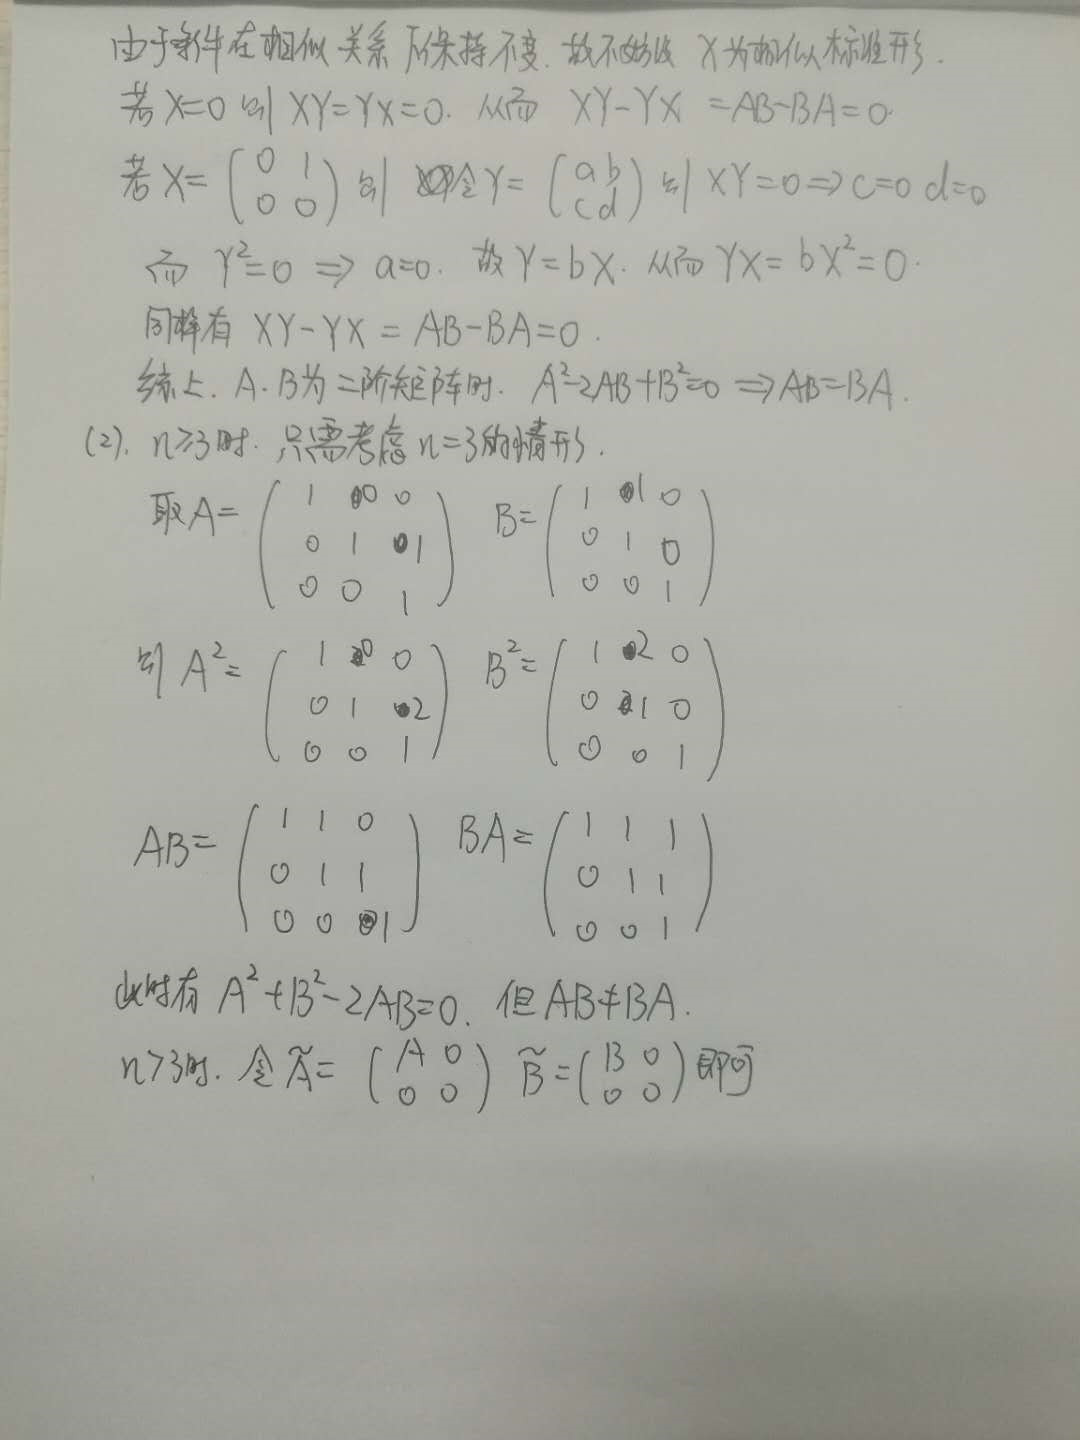 由于条件在相似关系下保持不变. 故不妨设 X为相似标准形.
若X=0 则 XY=YX=0. 从而 XY-YX =AB-BA=0
若X= (0 1; 0 0) 则 令Y= (a b; c d) 则 XY=0⇒c=0 d=0
而 Y²=0 ⇒ a=0. 故 Y=bX. 从而 YX= bX²=0.
同样有 XY-YX = AB-BA=0.
综上. A.B为二阶矩阵时. A²-2AB+B²=0 ⇒AB=BA.
(2). n≥3时. 只需考虑n=3的情形.
取A= (1 0 0; 0 1 1; 0 0 1) B= (1 1 0; 0 1 0; 0 0 1)
则 A²= (1 0 0; 0 1 2; 0 0 1) B²= (1 2 0; 0 1 0; 0 0 1)
AB= (1 1 0; 0 1 1; 0 0 1) BA= (1 1 1; 0 1 1; 0 0 1)
此时有 A²+B²-2AB=0. 但AB≠BA.
n>3时. 令Ã= (A 0; 0 0) B̃= (B 0; 0 0) 即可